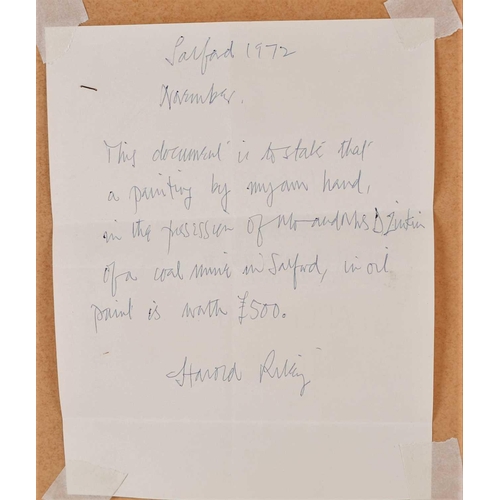 Salford 1972
November.
This document is to state that
a painting by my own hand,
in the possession of Mr and Mrs D
of a coal mine in Salford, in oil
paint is worth £500.
Harold Riley